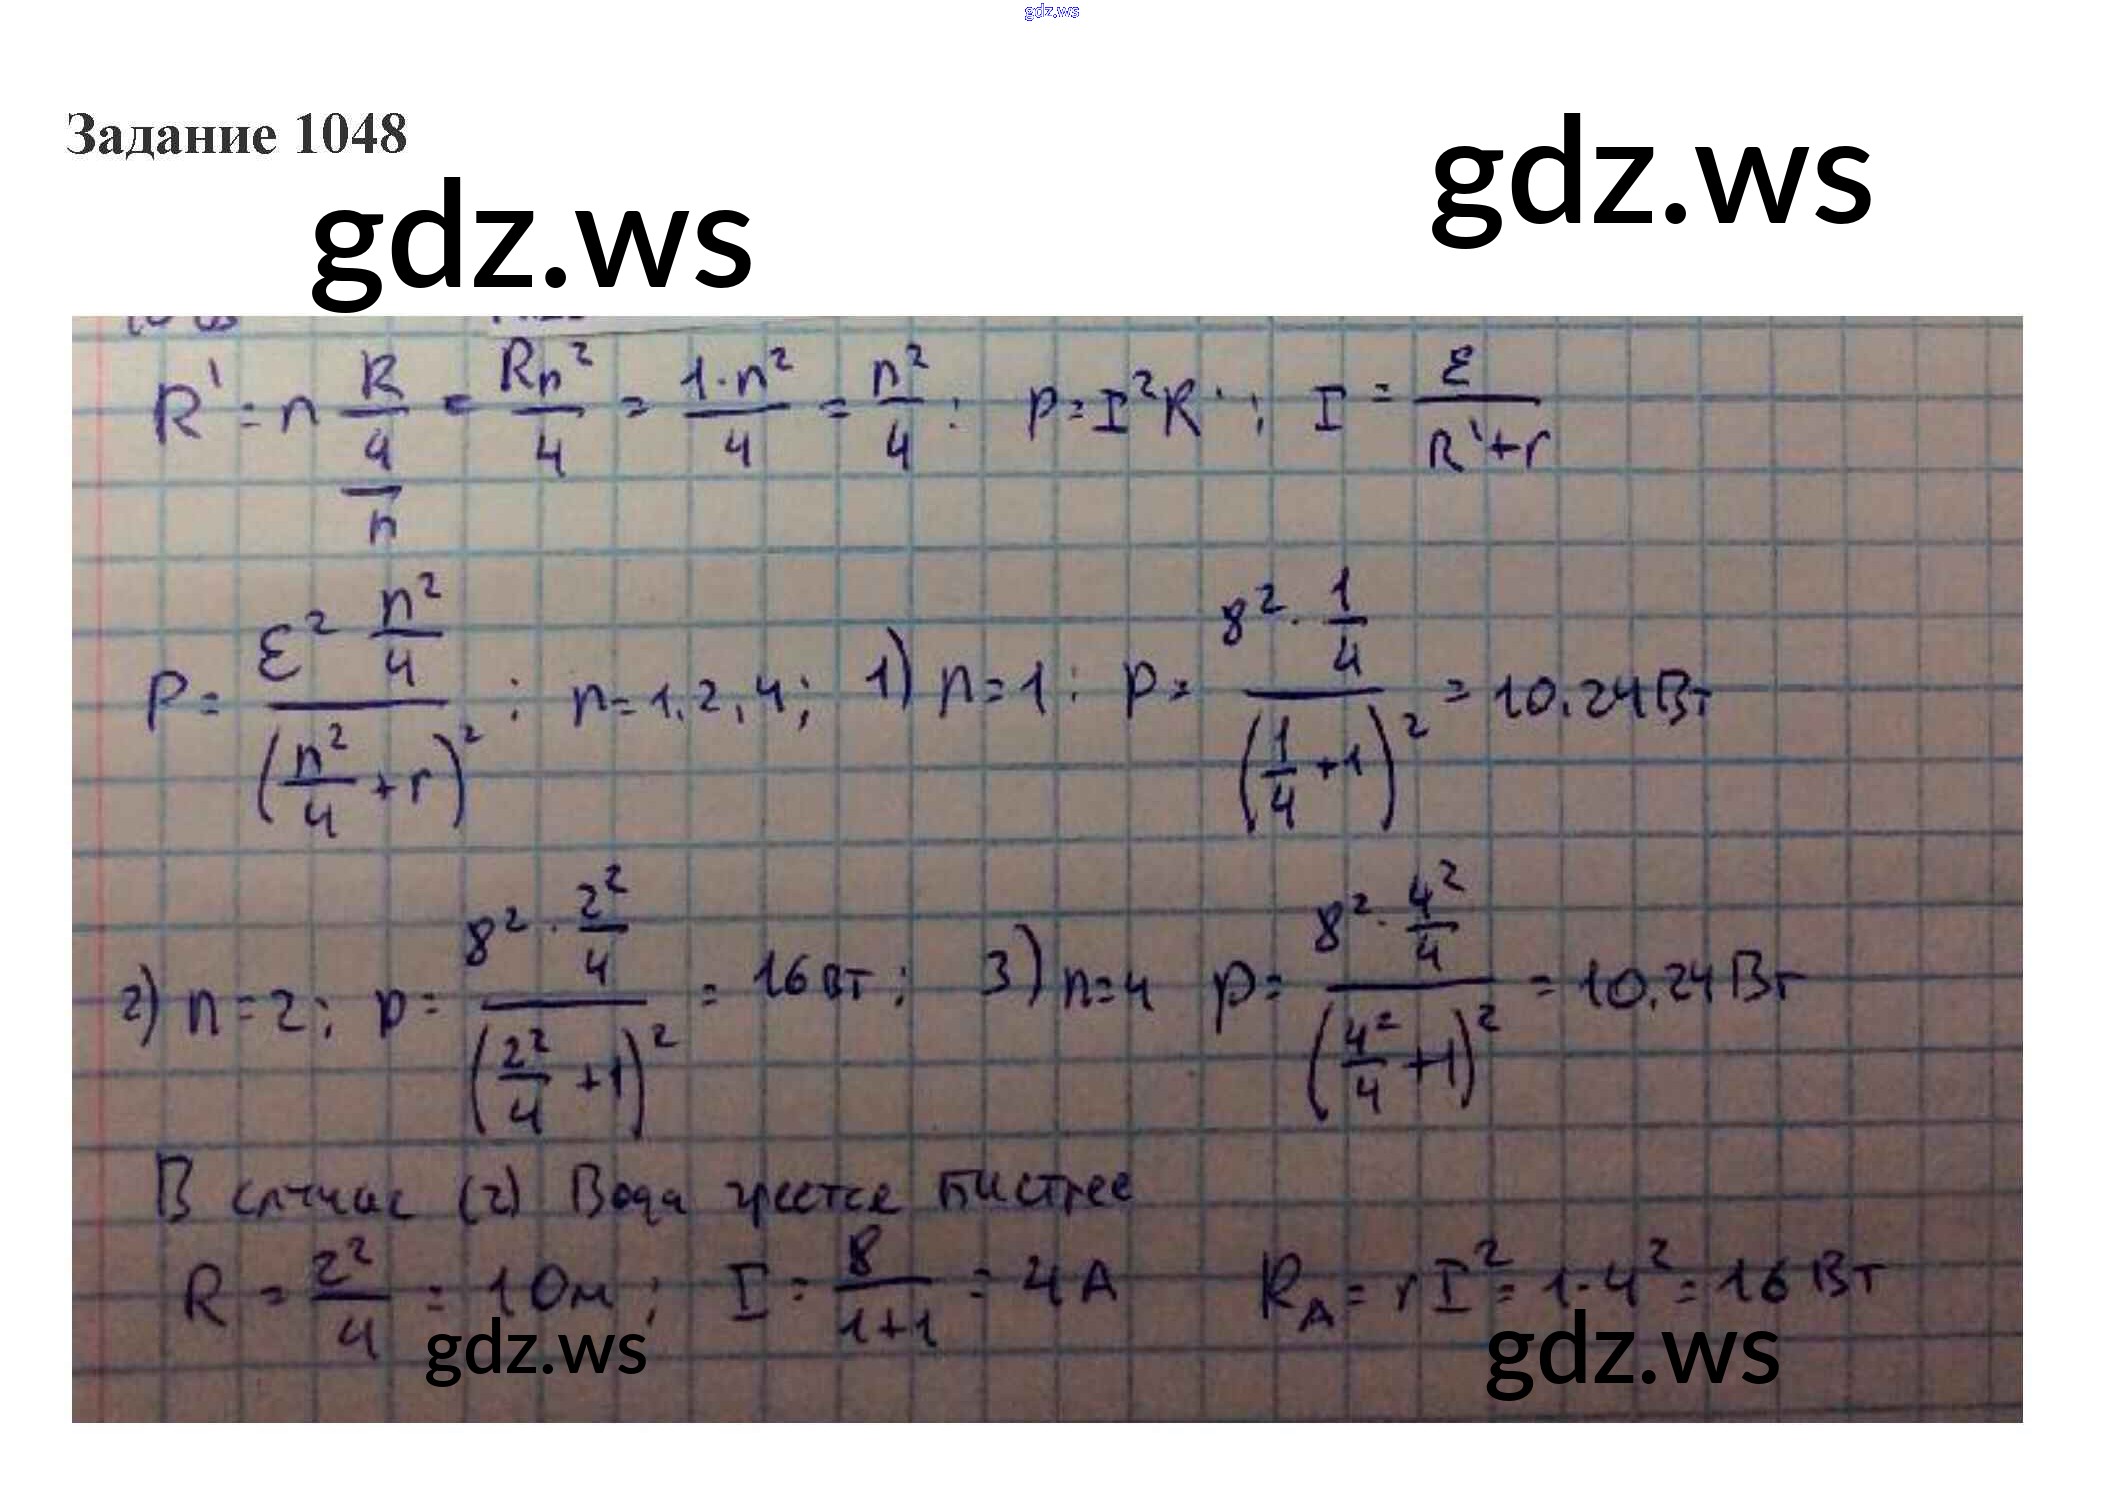 gdz.ws
Задание 1048
gdz.ws
gdz.ws
R' = n R/(4/n) = Rn²/4 = 1·n²/4 = n²/4; P = I²R'; I = ε/(R'+r)
P = (ε² n²/4)/(n²/4 + r)²; n = 1, 2, 4; 1) n = 1: P = (8² · 1/4)/(1/4 + 1)² = 10.24 Вт
2) n = 2; P = (8² · 2²/4)/(2²/4 + 1)² = 16 Вт; 3) n = 4 P = (8² · 4²/4)/(4²/4 + 1)² = 10.24 Вт
В случае (2) Вода греется бистрее
R = 2²/4 = 1 Ом; I = 8/(1+1) = 4 А R_A = rI² = 1·4² = 16 Вт
gdz.ws
gdz.ws